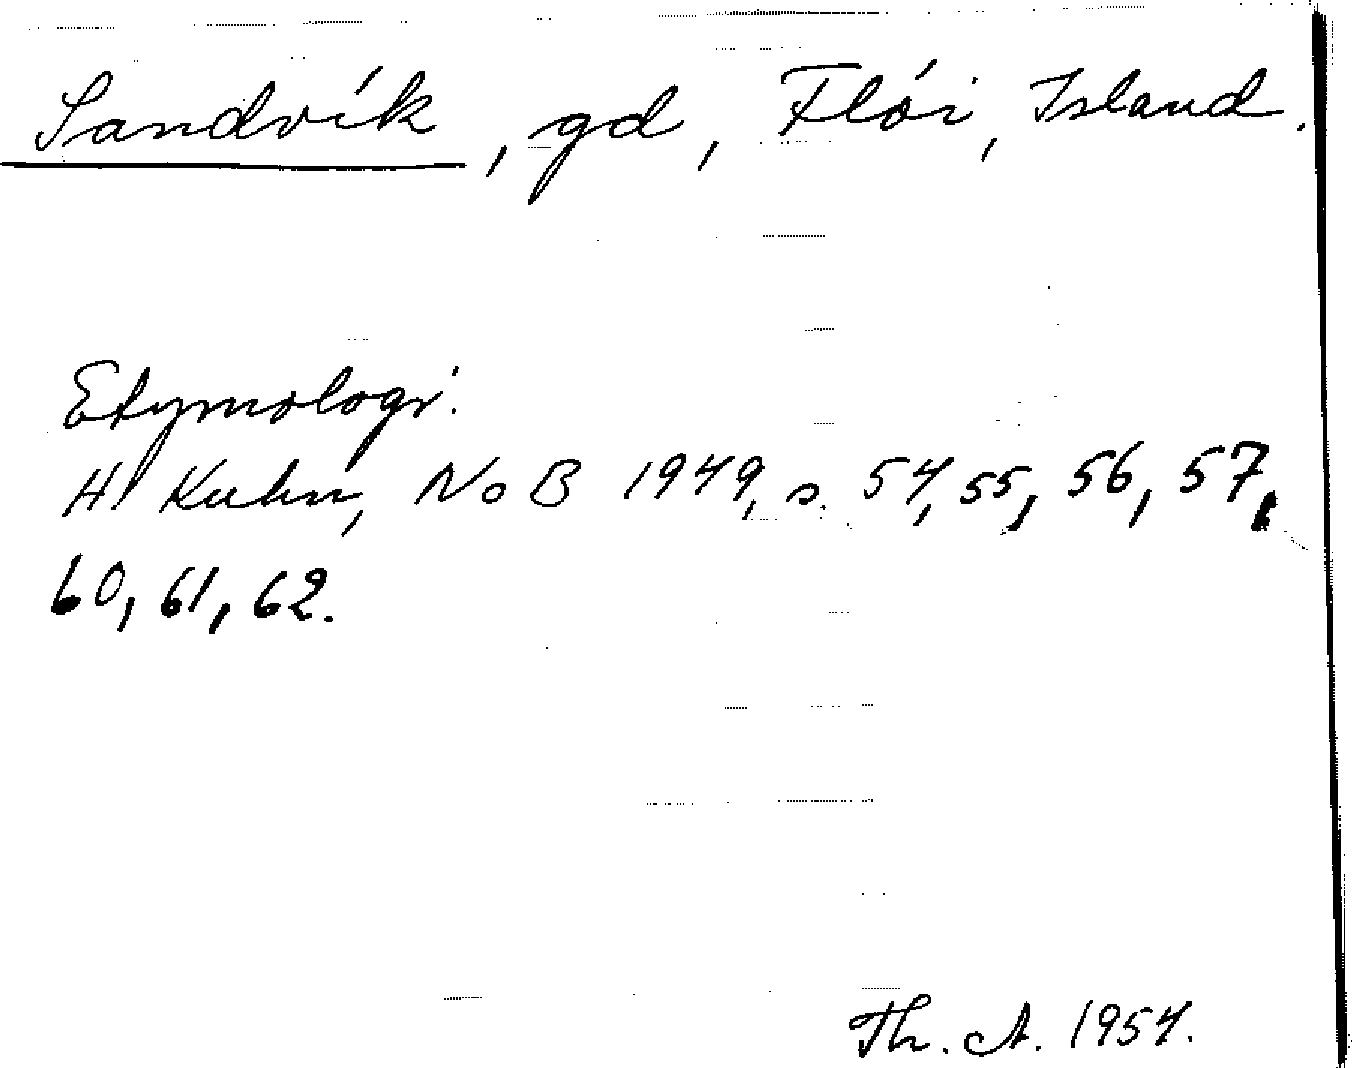 Sandvík, gd, Flói, Island.
Etymologi:
H Kuhn, NoB 1949, s. 54, 55, 56, 57,
60, 61, 62.
Th. A. 1954.